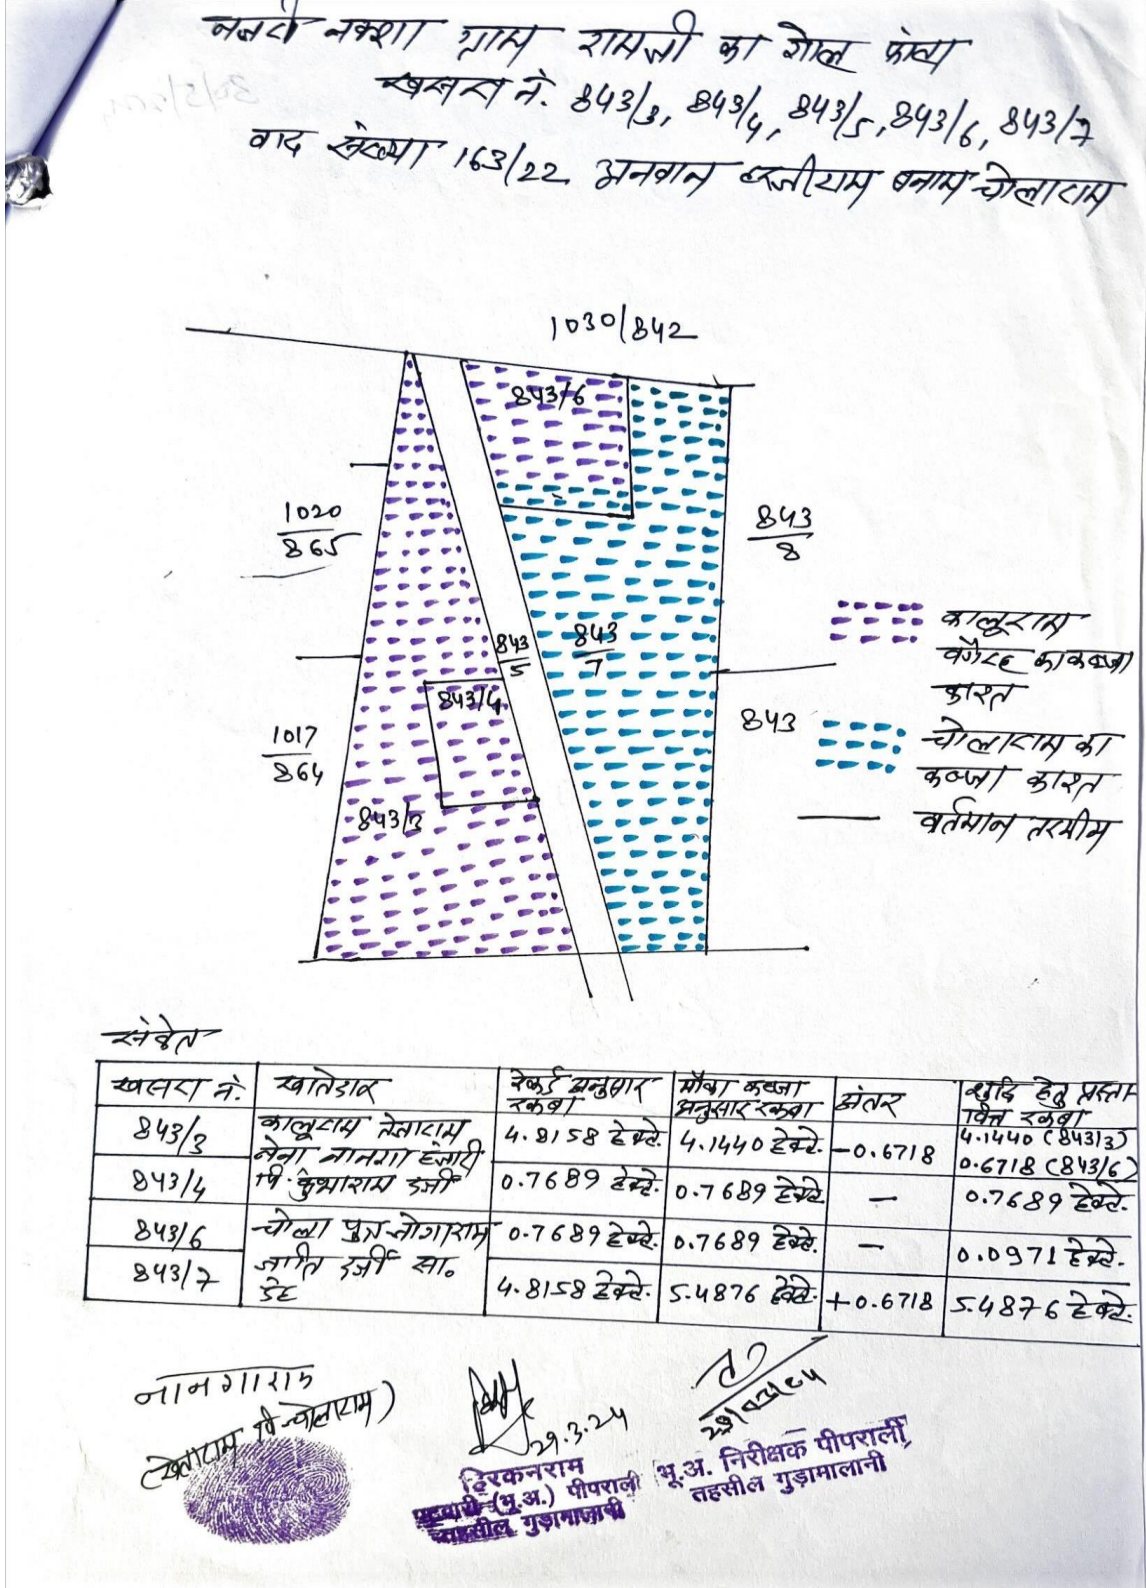 नजरी नक्शा ग्राम रामजी का गोल फांटा
खसरा नं. 843/3, 843/4, 843/5, 843/6, 843/7
वाद संख्या 163/22 अनवान हजारीराम बनाम चोलाराम
1030/842
843/6
1020/865
843/8
843/5
843/7
843/4
1017/864
843
843/3
कालूराम
वगैरह का कब्जा
काश्त
चोलाराम का
कब्जा काश्त
वर्तमान तरमीम
संकेत
खसरा नं. खातेदार रेकर्ड अनुसार रकबा मौका कब्जा अनुसार रकबा अंतर शुद्धि हेतु प्रस्तावित रकबा
843/3 कालूराम 4.8158 हेक्टे. 4.1440 हेक्टे. -0.6718 4.1440 (843/3)
0.6718 (843/6)
843/4 पि. कुंभाराम दर्जी 0.7689 हेक्टे. 0.7689 हेक्टे. — 0.7689 हेक्टे.
843/6 चोला पुत्र जोगाराम 0.7689 हेक्टे. 0.7689 हेक्टे. — 0.0971 हेक्टे.
843/7 जाति दर्जी सा. देह 4.8158 हेक्टे. 5.4876 हेक्टे. +0.6718 5.4876 हेक्टे.
नानगाराम
29.3.24
29/03/24
हिरकनराम
पटवारी (भू.अ.) पीपराली
तहसील गुड़ामालानी
भू.अ. निरीक्षक पीपराली
तहसील गुड़ामालानी